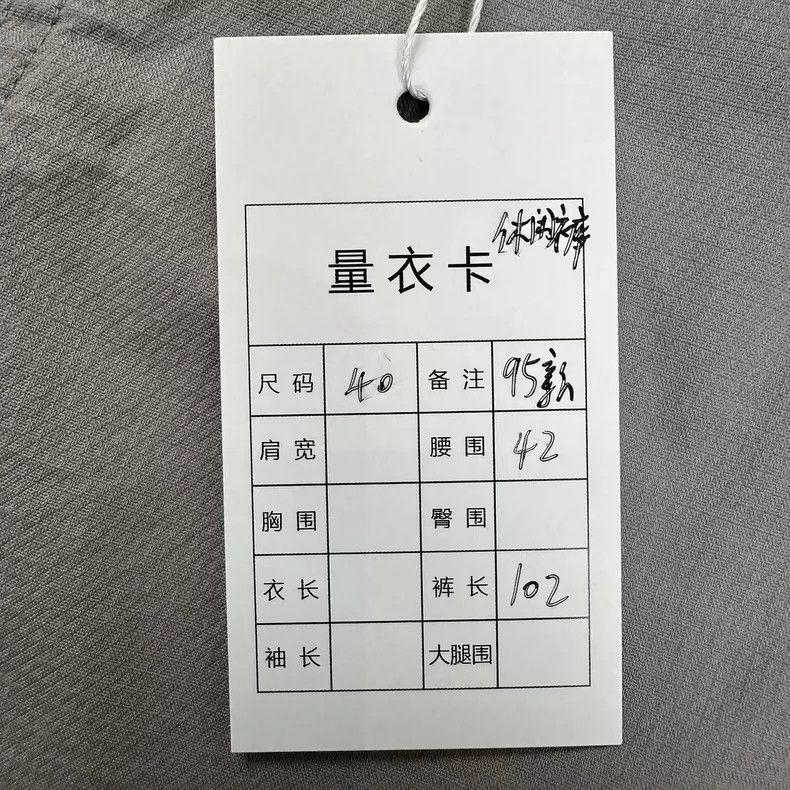 休闲裤
量衣卡
尺码 40 备注 95款
肩宽 腰围 42
胸围 臀围
衣长 裤长 102
袖长 大腿围